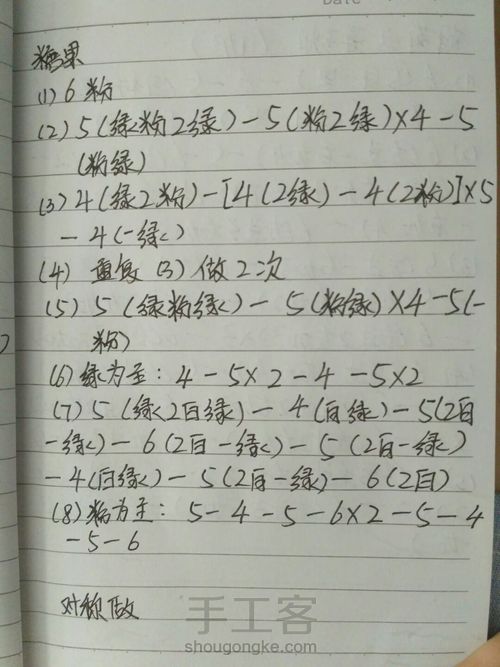 糖果
(1) 6粉
(2) 5(绿粉2绿)-5(粉2绿)×4-5
(粉绿)
(3) 4(绿2粉)-[4(2绿)-4(2粉)]×5
-4(一绿)
(4) 重复(3)做2次
(5) 5(绿粉绿)-5(粉绿)×4-5(一
粉)
(6) 绿为主: 4-5×2-4-5×2
(7) 5(绿2白绿)-4(白绿)-5(2白
一绿)-6(2白一绿)-5(2白一绿)
-4(白绿)-5(2白一绿)-6(2白)
(8) 粉为主: 5-4-5-6×2-5-4
-5-6
对称做
手工客
shougongke.com